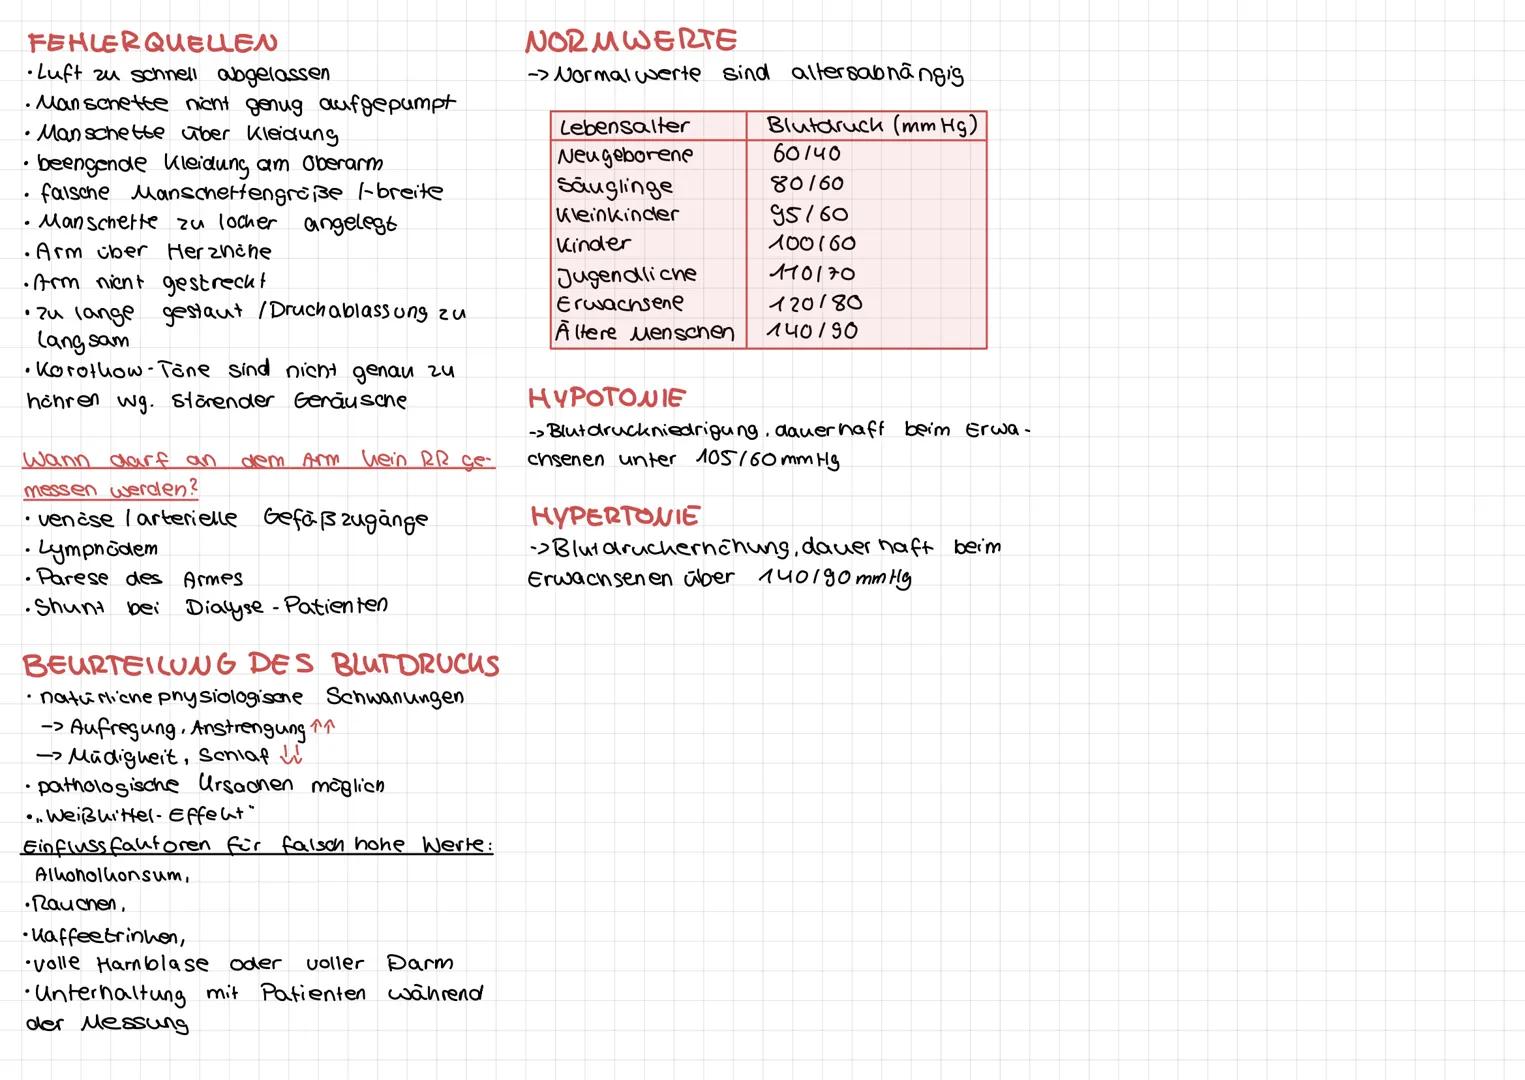 FEHLERQUELLEN
· Luft zu schnell abgelassen
· Manschette nicht genug aufgepumpt
· Manschette über Kleidung
· beengende Kleidung am Oberarm
· falsche Manschettengröße /-breite
· Manschette zu locker angelegt
· Arm über Herzhöhe
· Arm nicht gestreckt
· zu lange gestaut / Druckablassung zu
langsam
· Korotkow-Töne sind nicht genau zu
höhren wg. störender Geräusche
Wann darf an dem Arm kein RR ge-
messen werden?
· venöse / arterielle Gefäßzugänge
· Lymphödem
· Parese des Armes
· Shunt bei Dialyse-Patienten
BEURTEILUNG DES BLUTDRUCKS
· natürliche physiologische Schwanungen
-> Aufregung, Anstrengung ↑↑
-> Müdigkeit, Schlaf ↓↓
· pathologische Ursachen möglich
· „Weißkittel-Effekt"
Einflussfaktoren für falsch hohe Werte:
Alkoholkonsum,
· Rauchen,
· Kaffeetrinken,
· volle Harnblase oder voller Darm
· Unterhaltung mit Patienten während
der Messung
NORMWERTE
-> Normalwerte sind altersabhängig
Lebensalter Blutdruck (mmHg)
Neugeborene 60/40
Säuglinge 80/60
Kleinkinder 95/60
Kinder 100/60
Jugendliche 110/70
Erwachsene 120/80
Ältere Menschen 140/90
HYPOTONIE
-> Blutdruckniedrigung, dauerhaft beim Erwa-
chsenen unter 105/60 mmHg
HYPERTONIE
-> Blutdruckerhöhung, dauerhaft beim
Erwachsenen über 140/90 mmHg